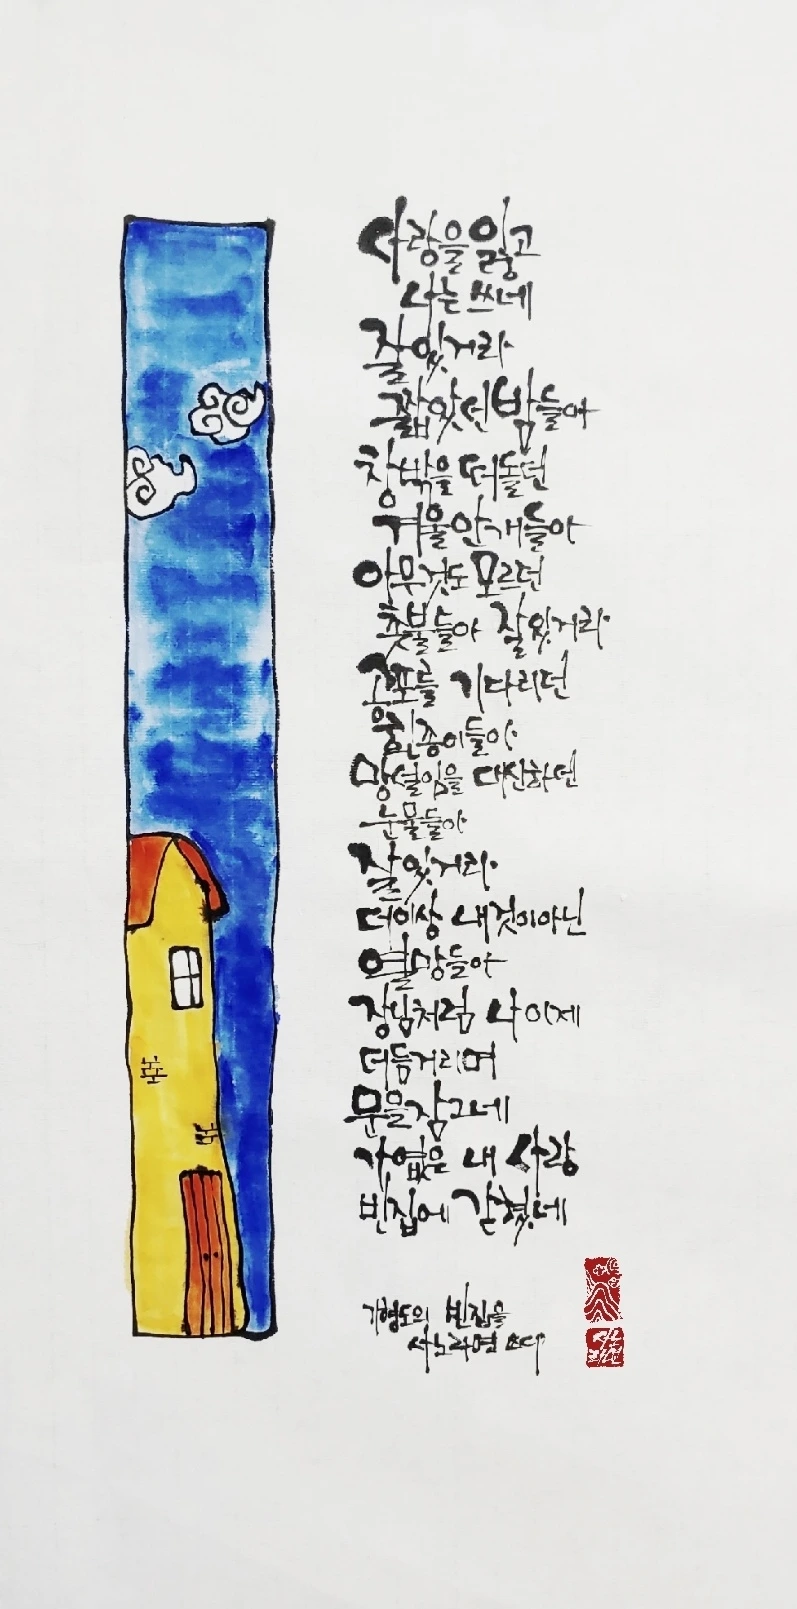 사랑을 잃고
나는 쓰네
잘있거라
짧았던 밤들아
창밖을 떠돌던
겨울안개들아
아무것도 모르던
촛불들아 잘있거라
공포를 기다리던
흰종이들아
망설임을 대신하던
눈물들아
잘있거라
더이상 내것이아닌
열망들아
장님처럼 나 이제
더듬거리며
문을 잠그네
가엾은 내 사랑
빈집에 갇혔네
기형도의 빈집을
쓰다